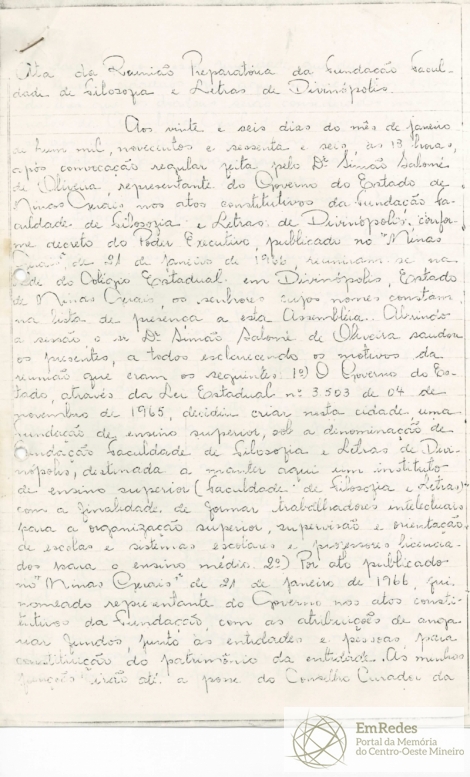 Ata da Reunião Preparatória da Fundação Facul-
dade de Filosofia e Letras de Divinópolis.
Aos vinte e seis dias do mês de janeiro
de hum mil, novecentos e sessenta e seis, às 13 horas,
após convocação regular feita pelo Dr. Simão Salomé
de Oliveira, representante do Governo do Estado de
Minas Gerais nos atos constitutivos da Fundação Fa-
culdade de Filosofia e Letras de Divinópolis, confor-
me decreto do Poder Executivo, publicado no "Minas
Gerais" de 21 de janeiro de 1966, reuniram-se na
sede do Colégio Estadual em Divinópolis, Estado
de Minas Gerais, os senhores cujos nomes constam
na lista de presença a esta Assembléia. Abrindo
a sessão o sr. Dr. Simão Salomé de Oliveira saudou
os presentes, a todos esclarecendo os motivos da
reunião que eram os seguintes: 1º) O Governo do Es-
tado, através da Lei Estadual nº 3.503 de 04 de
novembro de 1965, decidiu criar nesta cidade uma
fundação de ensino superior, sob a denominação de
Fundação Faculdade de Filosofia e Letras de Divi-
nópolis, destinada a manter aqui um instituto
de ensino superior (Faculdade de Filosofia e Letras)
com a finalidade de formar trabalhadores intelectuais
para a organização superior, supervisão e orientação
de escolas e sistemas escolares e professores licencia-
dos para o ensino médio. 2º) Por ato publicado
no "Minas Gerais" de 21 de janeiro de 1966, fui
nomeado representante do Governo nos atos consti-
tutivos da Fundação, com as atribuições de anga-
riar fundos, junto às entidades e pessoas, para
constituição do patrimônio da entidade. As minhas
funções irão até a posse do Conselho Curador da
EmRedes
Portal da Memória
do Centro-Oeste Mineiro